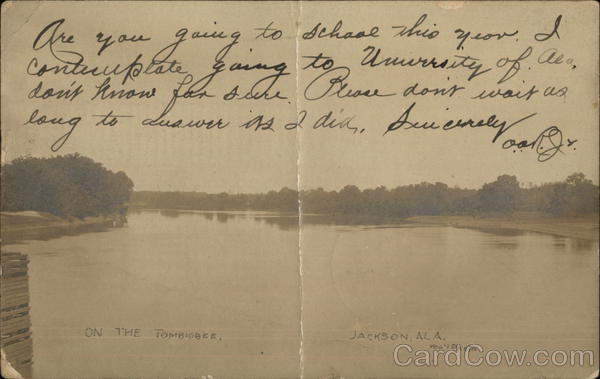 Are you going to school this year. I
contemplate going to University of Ala,
don't know for sure. Please don't wait as
long to answer as I did, Sincerely
ON THE TOMBIGBEE,
JACKSON, ALA.
CardCow.com